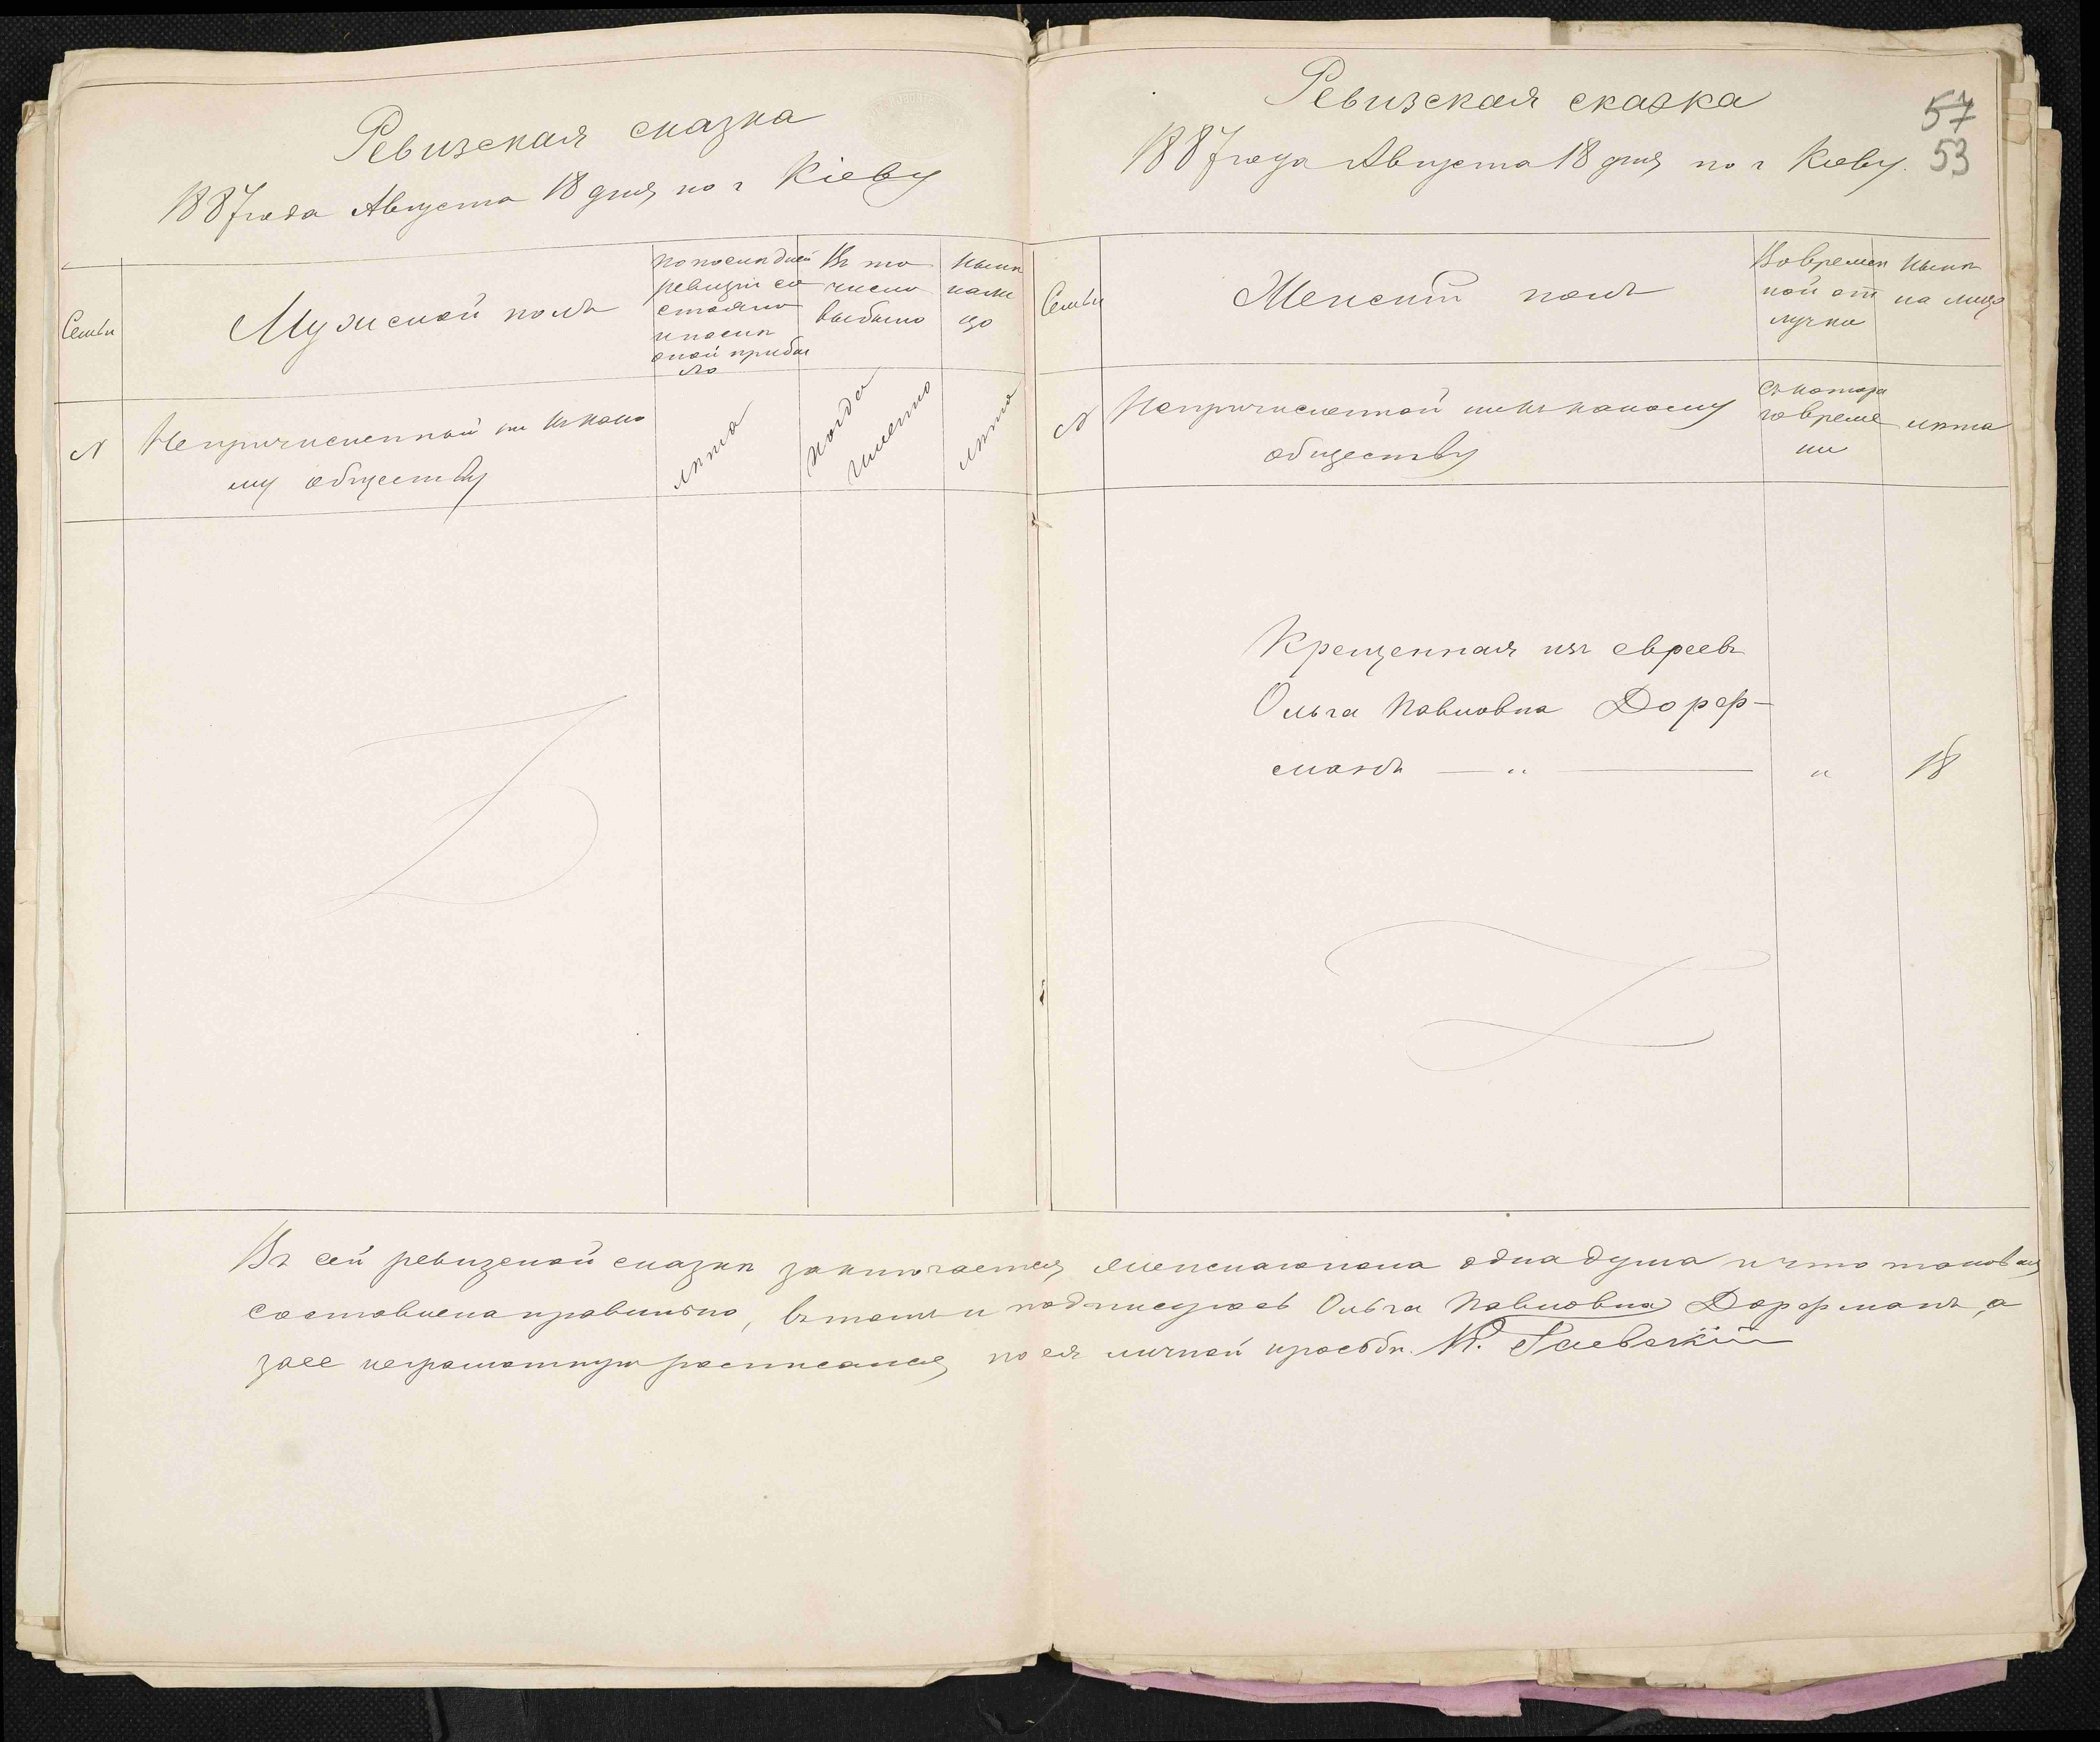 Ревизская сказка
1887 года Августа 18 дня по г Кіеву
Семьи
Мужской полъ
По последней
ревизіи со
стояло
и после
оной прибы
ло
Въ то
число
выбыло
Ныне
на ли
цо
№
Непричисленной ни къ како
му обществу
лета
Когда
именно
лета
Ревизская сказка
1887 года Августа 18 дня по г Кіеву.
57
53
Семьи
Женскій полъ
Во времен
ной от
лучке
Ныне
на лицо
№
Непричисленной ни къ какому
обществу
Съ котора
го време
ни
лета
Крещенная изъ евреевъ
Ольга Павловна Дорф-
манъ — „ — „ 18
Въ сей ревизской сказке заключается женскаго пола одна душа и что таковая
составлена правильно, въ томъ и подписуюсь Ольга Павловна Дорфманъ, а
за ее неграмотную росписался по ея личной просьбе. К. Гаевскій